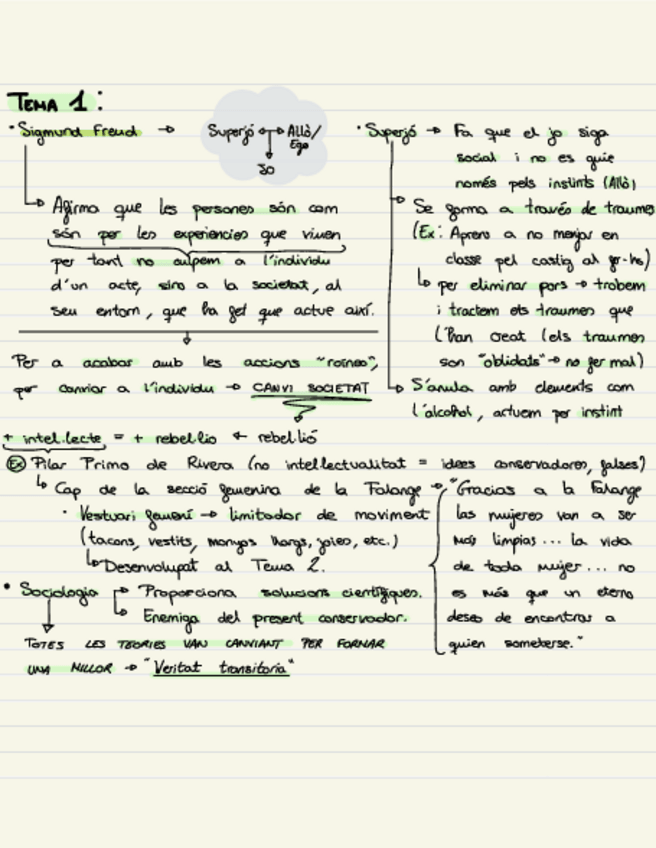 TEMA 1:
· Sigmund Freud →
Superjó ↔ Allò/
Ego
Jo
Afirma que les persones són com
són per les experiencies que viuen
per tant no culpem a l'individu
d'un acte, sino a la societat, al
seu entorn, que ha fet que actue així.
Per a acabar amb les accions "roïnes",
per canviar a l'individu → CANVI SOCIETAT
+ intel.lecte = + rebel·lio ← rebel·lió
· Superjó → Fa que el jo siga
social i no es guie
només pels instints (Allò)
→ Se forma a través de traumes
(Ex: Aprens a no menjar en
classe pel castig al fer-ho)
↳ per eliminar pors → trobem
i tractem els traumes que
l'han creat (els traumes
son "oblidats" → no fer mal)
→ S'anula amb elements com
l'alcohol, actuem per instint
Ex Pilar Primo de Rivera (no intel·lectualitat = idees conservadores, falses)
↳ Cap de la secció femenina de la Falange →
· Vestuari femení → limitador de moviment
(tacons, vestits, monyos llargs, joies, etc.)
↳ Desenvolupat al Tema 2.
"Gracias a la Falange
las mujeres van a ser
más limpias... la vida
de toda mujer... no
es más que un eterno
deseo de encontrar a
quien someterse."
• Sociologia → Proporciona solucions científiques.
→ Enemiga del present conservador.
TOTES LES TEORIES VAN CANVIANT PER FORMAR
UNA MILLOR → "Veritat transitoria"